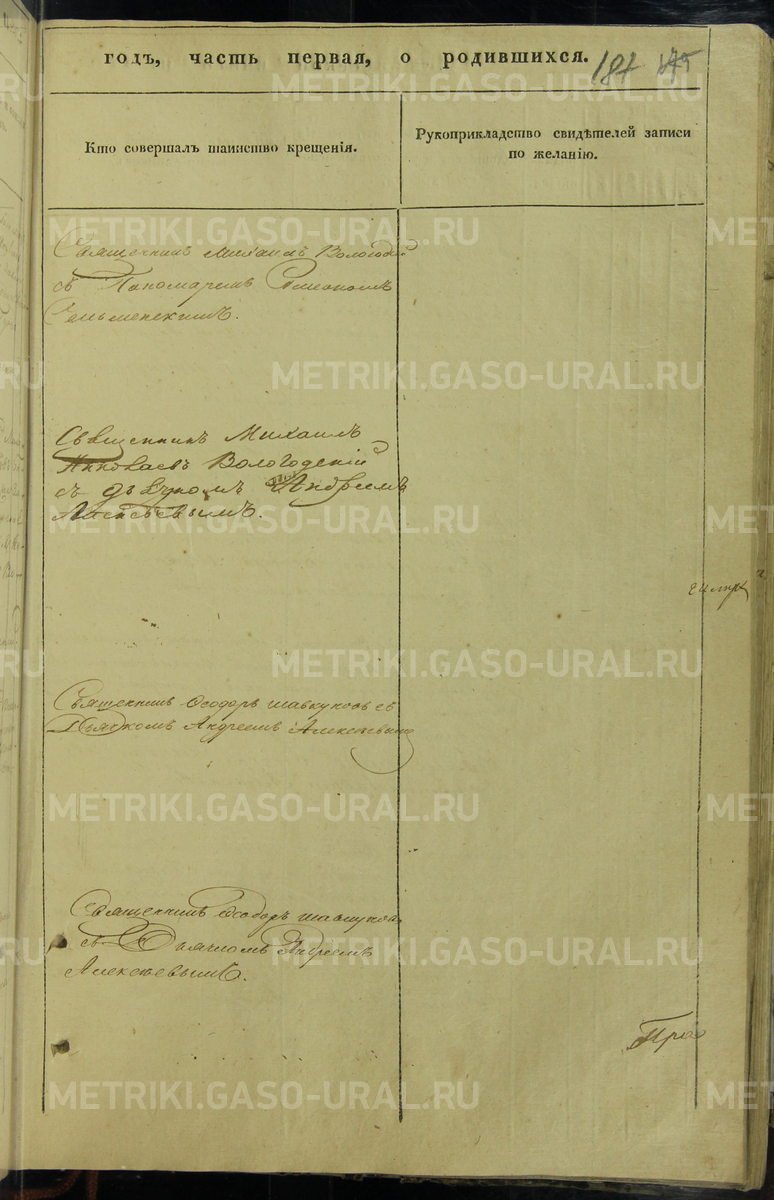 годъ, часть первая, о родившихся. 187 175
Кто совершалъ таинство крещенія.
Рукоприкладство свидѣтелей записи
по желанію.
Священникъ Михаилъ Вологодскій
съ Пономаремъ Симеономъ
Сельменскимъ.
Священникъ Михаилъ
Николаевъ Вологодскій
съ дьячкомъ Андреемъ
Алексѣевымъ.
Священникъ Ѳеодоръ Шавкуновъ съ
Дьячкомъ Андреемъ Алексѣевымъ
Священникъ Ѳеодоръ Шавкуновъ
съ Дьячкомъ Андреемъ
Алексѣевымъ.
METRIKI.GASO-URAL.RU